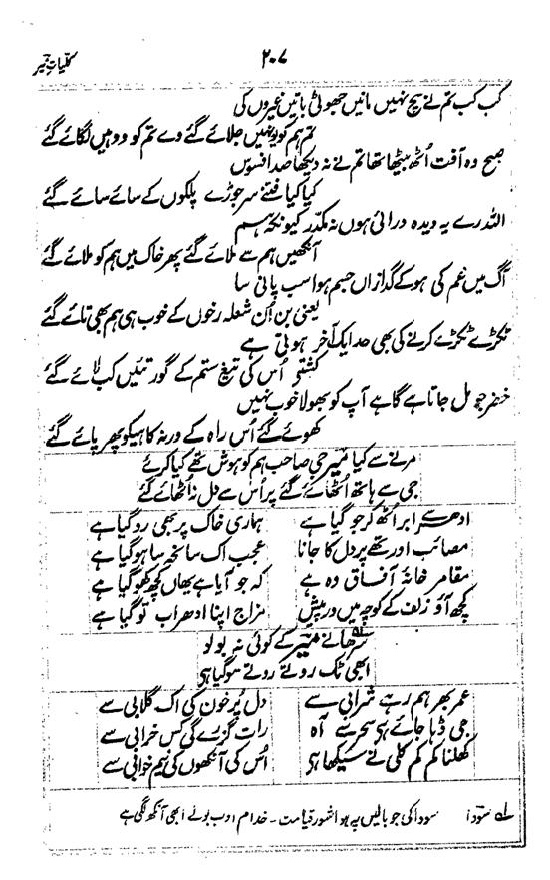 کلیاتِ میر
۲۰۷
کب کب تم نے سچ نہیں مانیں جھوٹی باتیں غیروں کی
تم ہم کو یونہیں جلائے گئے وے تم کو ووہیں لگائے گئے
صبح وہ آفت اُٹھ بیٹھا تھا تم نے نہ دیکھا صد افسوس
کیا کیا فتنے سر جوڑے پلکوں کے سائے سائے گئے
اللہ رے یہ دیدہ درائی ہوں نہ مکدّر کیونکہ ہم
آنکھیں ہم سے ملائے گئے پھر خاک میں ہم کو ملائے گئے
آگ میں غم کی ہو کے گدازاں جسم ہوا سب پانی سا
یعنی بن اُن شعلہ رخوں کے خوب ہی ہم بھی تائے گئے
ٹکڑے ٹکڑے کرنے کی بھی حد ایک آخر ہوتی ہے
کشتے اُس کی تیغِ ستم کے گور تئیں کب لائے گئے
خضر جو مل جاتا ہے گاہے آپ کو بھولا خوب نہیں
کھوئے گئے اُس راہ کے ورنہ کاہیکو پھر پائے گئے
مرنے سے کیا میر جی صاحب ہم کو ہوش تھے کیا کرئے
جی سے ہاتھ اُٹھائے گئے پر اُس سے دل نہ اُٹھائے گئے
ادھر سے ابر اُٹھ کر جو گیا ہے ہماری خاک پر بھی رو گیا ہے
مصائب اور تھے پر دل کا جانا عجب اک سانحہ سا ہو گیا ہے
مقامر خانۂ آفاق وہ ہے کہ جو آیا ہے یھاں کچھ کھو گیا ہے
کچھ آؤ زلف کے کوچہ میں درپیش مزاج اپنا ادھر اب تو گیا ہے
سرھانے میر کے کوئی نہ بولو
ابھی ٹک روتے روتے سو گیا ہے
عمر بھر ہم رہے شرابی سے دل پُر خون کی اک گلابی سے
جی ڈہا جائے ہے سحر سے آہ رات گزرے گی کس خرابی سے
کھلنا کم کم کلی نے سیکھا ہے اُس کی آنکھوں کی نیم خوابی سے
لہ سودا سودا کی جو بالیں پہ ہوا شورِ قیامت - خدامِ ادب بولے ابھی آنکھ لگی ہے